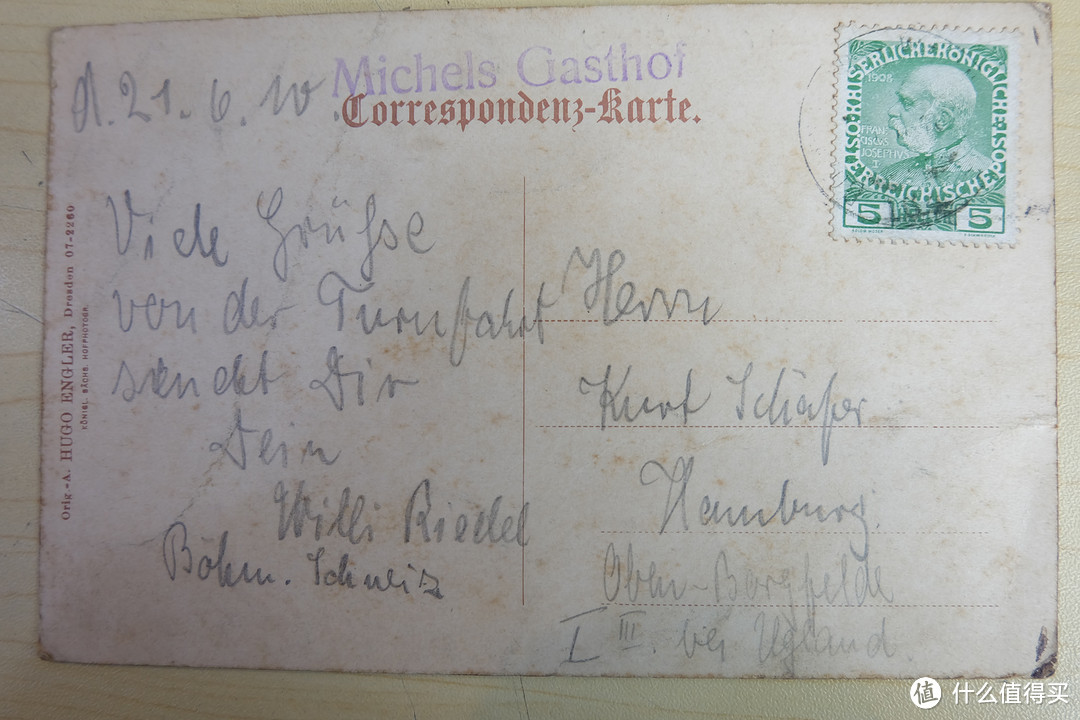 Michels Gasthof
Correspondenz-Karte.
d. 21. 6. 10.
Viele Grüsse
von der Turnfahrt
sendet Dir
Dein
Willi Riedel
Böhm. Schweiz
Herrn
Kurt Schäfer
Hamburg.
Borgfelde
I III. bei
Orig.-A. HUGO ENGLER, Dresden 07-2260
KÖNIGL. SÄCHS. HOFPHOTOGR.
KAISERLICHEKÖNIGLICHE
ÖSTERREICHISCHEPOST
1908
FRAN
CISCVS
JOSEPHVS
I
5 5
值 什么值得买